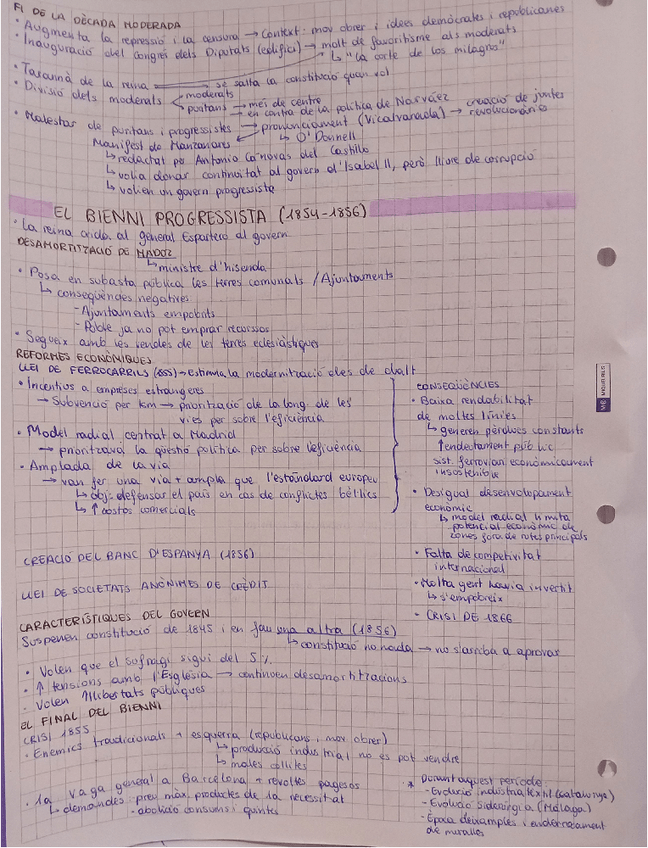 FI DE LA DÈCADA MODERADA
• Augmenta la repressió i la censura → Context: mov obrer i idees demòcrates i republicanes
• Inauguració del Congrés dels Diputats (edifici) → molt de favoritisme als moderats
↳ "La corte de los milagros"
• Tarannà de la reina → se salta la constitució quan vol
• Divisió dels moderats
moderats
puritans → més de centre
→ en contra de la política de Narváez
• Malestar de puritans i progressistes → pronunciament (Vicalvarada) → creació de juntes revolucionàries
Manifest de Manzanares
↳ O'Donnell
↳ redactat per Antonio Cánovas del Castillo
↳ volia donar continuitat al govern d'Isabel II, però lliure de corrupció
↳ volien un govern progressista
EL BIENNI PROGRESSISTA (1854-1856)
• La reina crida al general Espartero al govern
DESAMORTITZACIÓ DE MADOZ
↳ ministre d'hisenda
• Posa en subasta pública les terres comunals / Ajuntaments
↳ conseqüències negatives
- Ajuntaments empobrits
- Poble ja no pot emprar recursos
• Segueix amb les vendes de les terres eclesiàstiques
REFORMES ECONÒMIQUES
LLEI DE FERROCARRILS (1855) → estimula la modernització des de dalt
• Incentius a empreses estrangeres
→ Subvenció per km → priorització de la long. de les
vies per sobre l'eficiència
• Model radial centrat a Madrid
→ prioritzava la qüestió política per sobre l'eficiència
• Amplada de la via
→ van fer una via + ampla que l'estàndard europeu
↳ obj: defensar el país en cas de conflictes bèl·lics
↳ ↑ costos comercials
CONSEQÜÈNCIES
• Baixa rendabilitat
de moltes línies
↳ generen pèrdues constants
↑ endeutament públic
sist. ferroviari econòmicament
insostenible
• Desigual desenvolupament
econòmic
↳ model radial limita
potencial econòmic de
zones fora de rutes principals
• Falta de competitivitat
internacional
• Molta gent havia invertit
↳ s'empobreix
• CRISI DE 1866
CREACIÓ DEL BANC D'ESPANYA (1856)
LLEI DE SOCIETATS ANÒNIMES DE CRÈDIT
CARACTERÍSTIQUES DEL GOVERN
Suspenen constitució de 1845 i en fan una altra (1856)
↳ constitució no nada → no s'arriba a aprovar
• Volen que el sofragi sigui del 5%
• ↑ tensions amb l'Església → continuen desamortitzacions
• Volen llibertats públiques
EL FINAL DEL BIENNI
CRISI 1855
• Enemics tradicionals + esquerra (republicans i mov. obrer)
↳ producció industrial no es pot vendre
↳ males collites
• 1a vaga general a Barcelona + revoltes pageses
↳ demandes: preu màx productes de 1a necessitat
- abolició consums i quintes
* Durant aquest període:
- Evolució indústria tèxtil (Catalunya)
- Evolució siderúrgia (Málaga)
- Època d'eixamples i enderrocament
de muralles